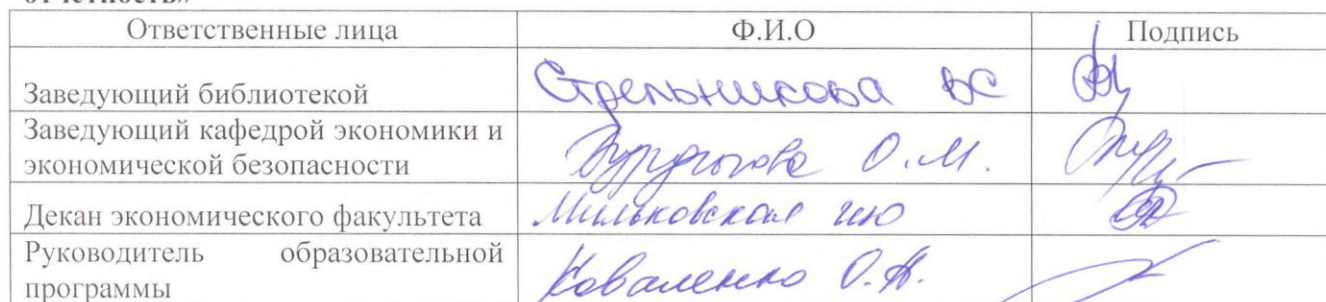 отчетность»
Ответственные лица Ф.И.О Подпись
Заведующий библиотекой Стрельникова ВС
Заведующий кафедрой экономики и
экономической безопасности О.М.
Декан экономического факультета Мильковская
Руководитель образовательной
программы Коваленко О.А.